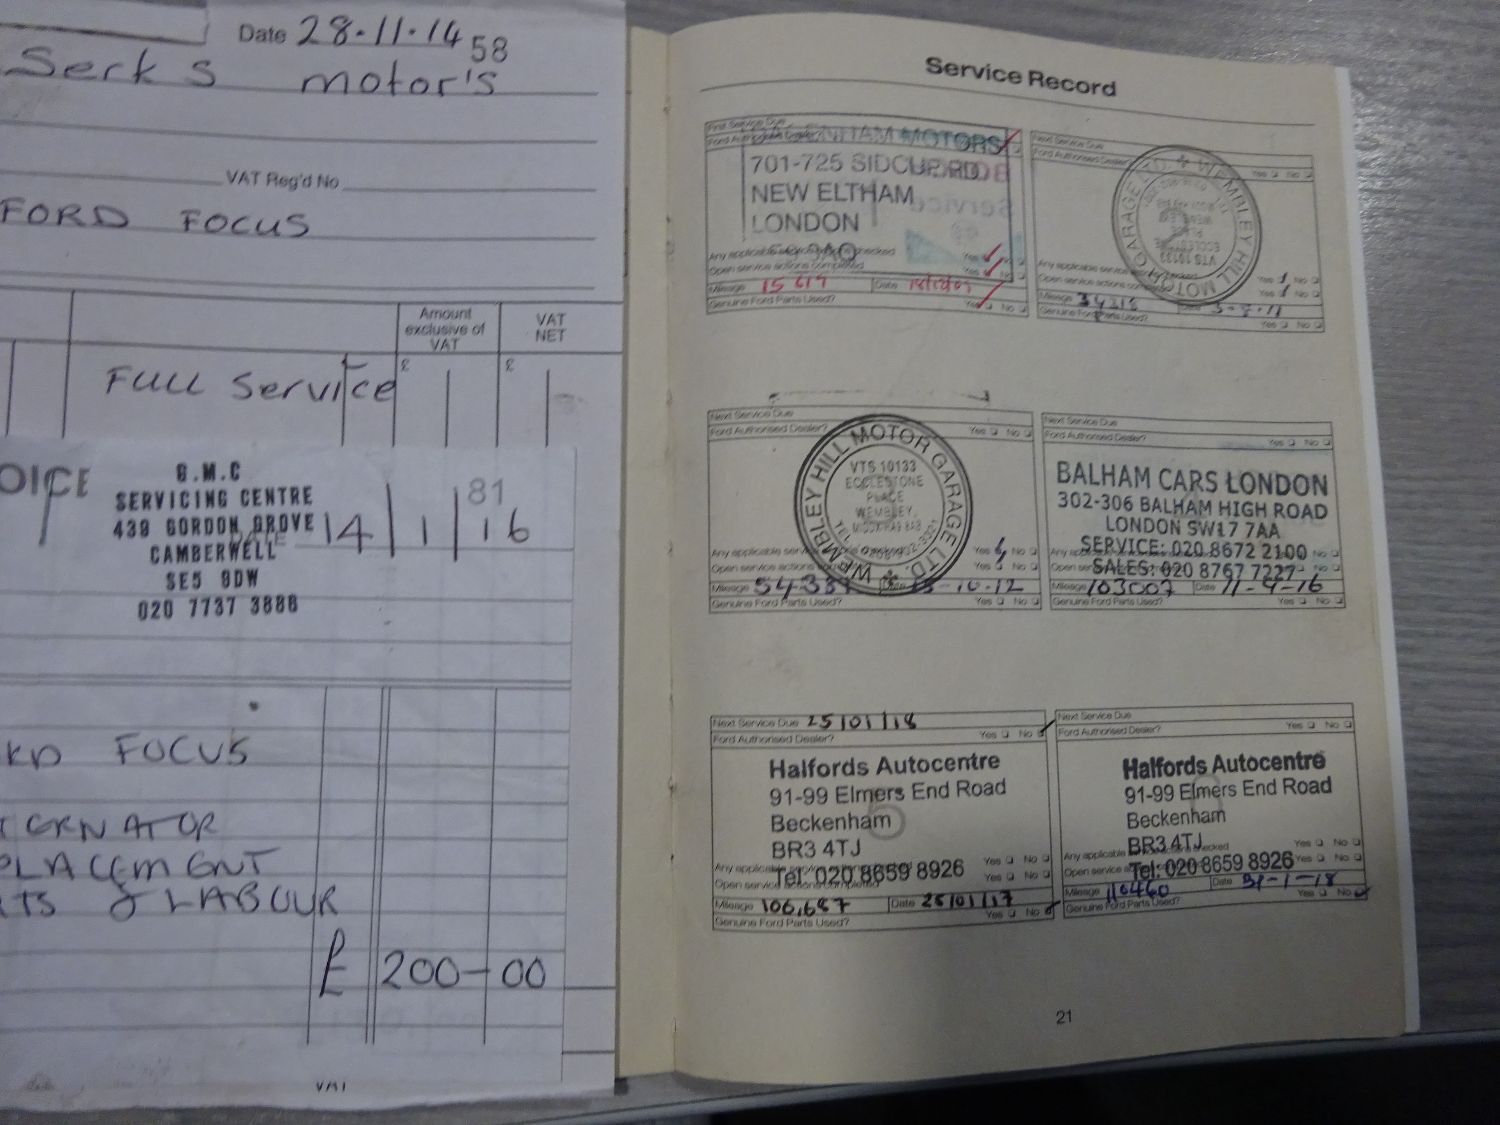 Date 28.11.14 58
Serk's motor's
VAT Reg'd No
FORD FOCUS
Amount exclusive of VAT
VAT NET
£ £
FULL Service
OICE
G.M.C
SERVICING CENTRE
439 GORDON GROVE
CAMBERWELL
SE5 9DW
020 7737 3888
81
14 1 16
FOCUS
PLACEMENT
& LABOUR
£ 200-00
Service Record
First Service Due
Ford Authorised Dealer?
MOTORS
701-725 SIDCUP RD
NEW ELTHAM
LONDON
Any applicable
checked Yes No
Open service actions completed Yes No
Mileage 15619 Date
Genuine Ford Parts Used? Yes No
Next Service Due
Ford Authorised Dealer? Yes No
WEMBLEY HILL MOTOR GARAGE LTD.
VTS 10133
ECCLESTONE
PLACE
Any applicable
Yes No
Open service Yes No
Mileage Date
Genuine Ford Parts Used? Yes No
Next Service Due
Ford Authorised Dealer? Yes No
WEMBLEY HILL MOTOR GARAGE LTD.
VTS 10133
ECCLESTONE
PLACE
WEMBLEY,
Any applicable Yes No
Open service actions Yes No
Mileage Date -10-12
Genuine Ford Parts Used? Yes No
Next Service Due
Ford Authorised Dealer? Yes No
BALHAM CARS LONDON
302-306 BALHAM HIGH ROAD
LONDON SW17 7AA
SERVICE: 020 8672 2100
SALES: 020 8767 7227
Mileage 103007 Date 11-4-16
Genuine Ford Parts Used? Yes No
Next Service Due 25/01/18
Ford Authorised Dealer? Yes No
Halfords Autocentre
91-99 Elmers End Road
Beckenham
BR3 4TJ
Any applicable Yes No
Tel: 020 8659 8926
Open service actions completed Yes No
Mileage 106,687 Date 25/01/17
Genuine Ford Parts Used? Yes No
Next Service Due
Ford Authorised Dealer? Yes No
Halfords Autocentre
91-99 Elmers End Road
Beckenham
BR3 4TJ
Any applicable checked Yes No
Tel: 020 8659 8926
Open service Yes No
Mileage 110460 Date 31-1-18
Genuine Ford Parts Used? Yes No
21